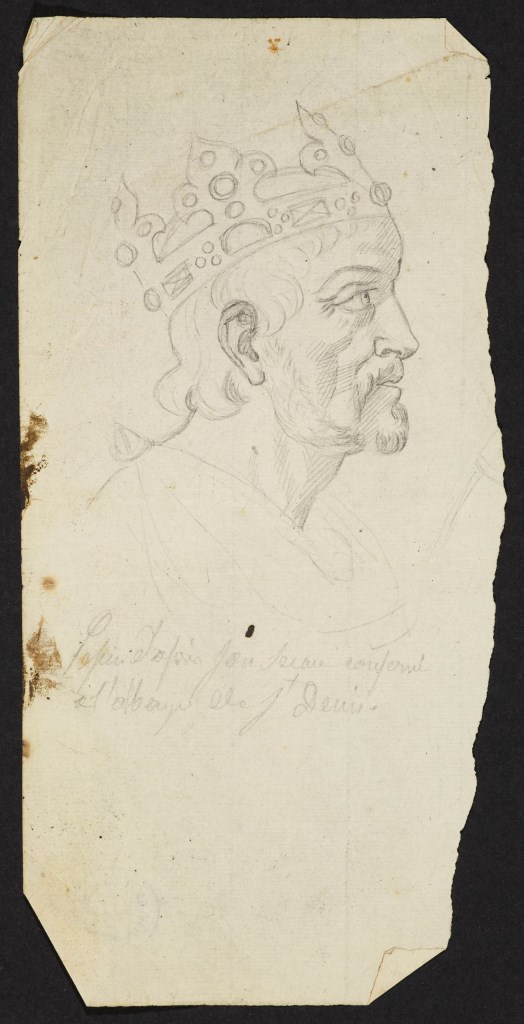 Pepin d'après son sceau conservé
à l'abaye de St Denis.